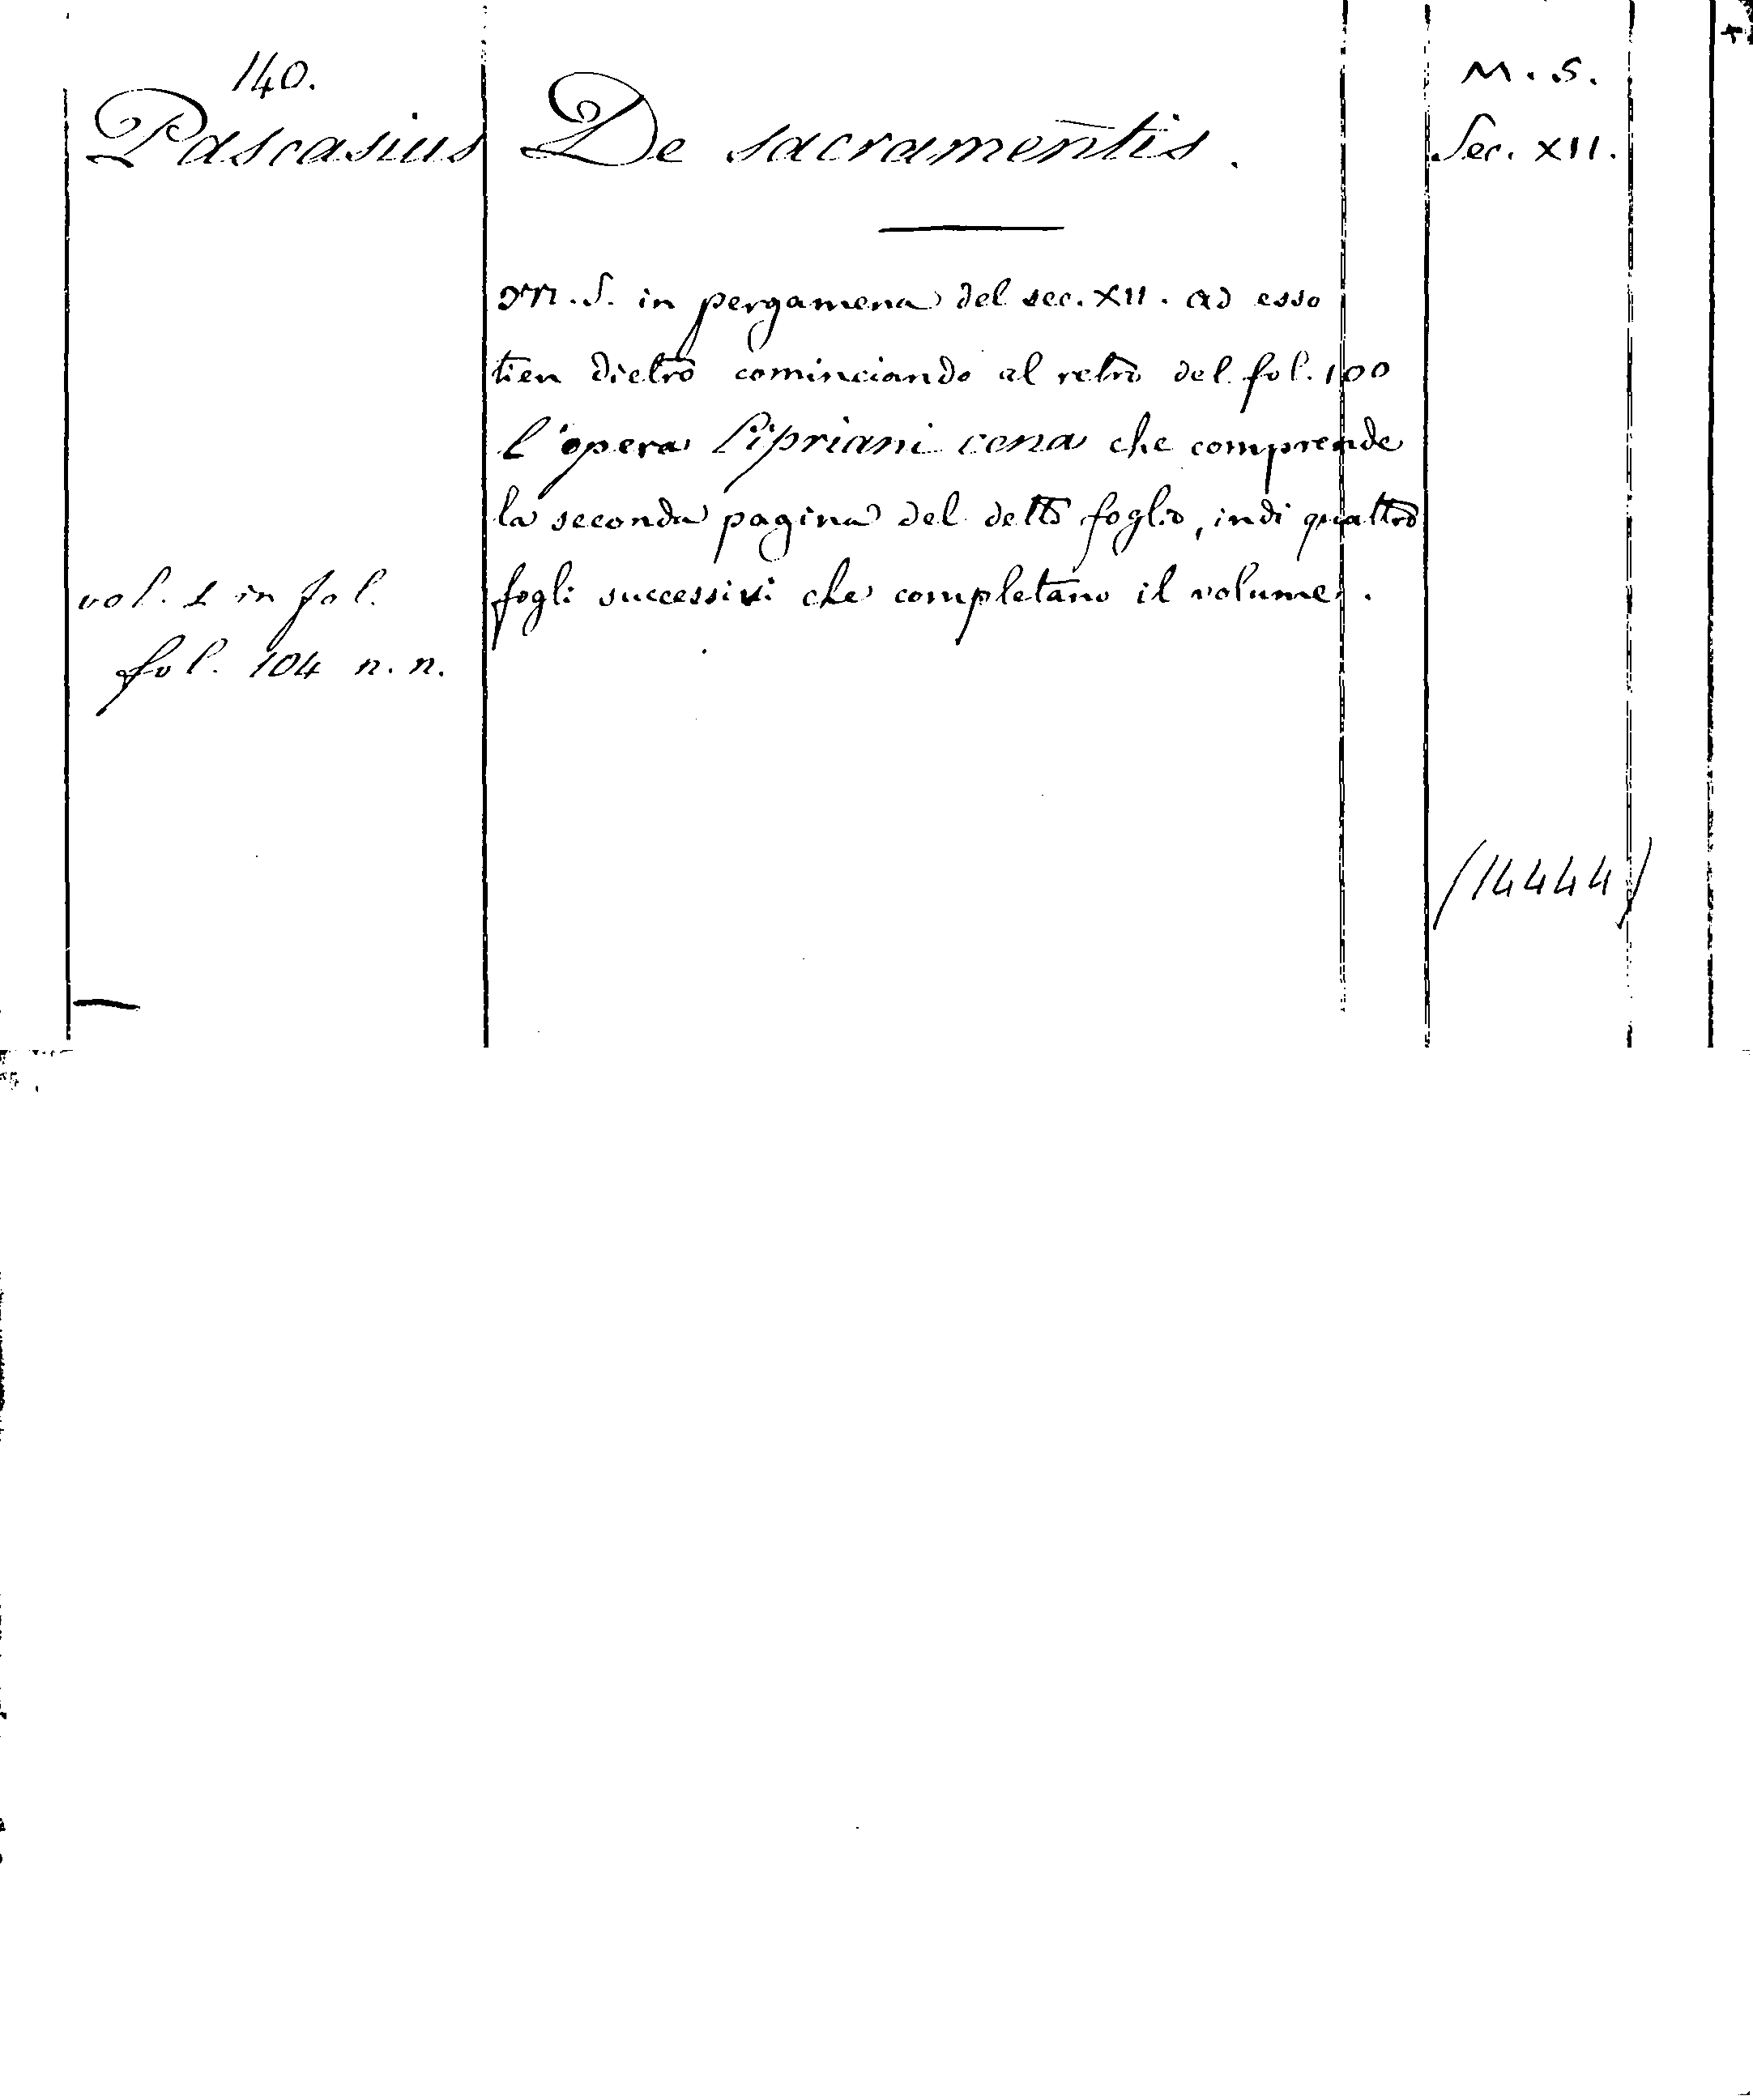 140.
Pascasius
De sacramentis.
M.S.
Sec. XII.
M.S. in pergamena del sec. XII. ad esso
tien dietro cominciando al retro del fol. 100
l'opera Cipriani cena che comprende
la seconda pagina del detto foglio, indi quattro
fogli successivi che completano il volume.
vol. 1 in fol.
fol. 104 n. n.
(14444)